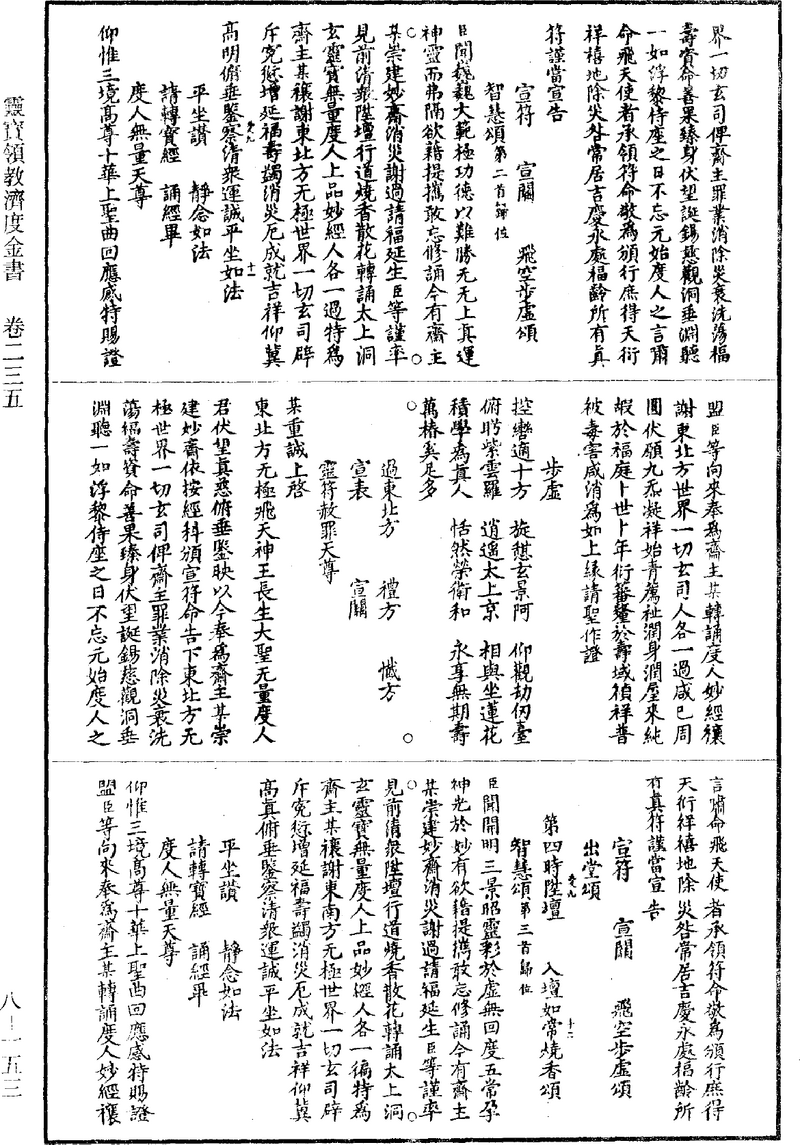 界一切玄司俾齋主罪業消除災衰洗蕩福
壽資命善果臻身伏望誕錫慈觀洞垂淵聽
一如浮黎侍座之日不忘元始度人之言爾
命飛天使者承領符命敬為頒行庶得天衍
祥禧地除災咎常居吉慶永處福齡所有真
符謹當宣告
宣符 宣關 飛空步虛頌
智慧頌第二首歸位
臣聞巍巍大範極功德以難勝无无上真運
神靈而弗隔欲藉提攜敢忘修誦今有齋主
某崇建妙齋消災謝過請福延生臣等謹率
見前清衆陞壇行道燒香散花轉誦太上洞
玄靈寶無量度人上品妙經人各一過特為
齋主某禳謝東北方无極世界一切玄司辟
斥寃愆增延福壽蠲消災厄成就吉祥仰冀
高明俯垂鑒察清衆運誠平坐如法
平坐讚 靜念如法
請轉寶經 誦經畢
度人無量天尊
仰惟三境高尊十華上聖曲回應感特賜證
盟臣等向來奉為齋主某轉誦度人妙經禳
謝東北方世界一切玄司人各一過咸已周
圓伏願九炁凝祥始青薦祉潤身潤屋來純
嘏於福庭卜世卜年衍蕃釐於壽域禎祥普
被毒害咸消為如上緣請聖作證
步虛
控轡適十方 旋憩玄景阿 仰觀劫仞臺
俯眄紫雲羅 逍遙太上京 相與坐蓮花
積學為真人 恬然榮衛和 永享無期壽
萬椿奚足多
過東北方 禮方 懺方
宣表 宣關
靈符赦罪天尊
某重誠上啓
東北方无極飛天神王長生大聖无量度人
君伏望真慈俯垂鑒映以今奉為齋主某崇
建妙齋依按經科頒宣符命告下東北方无
極世界一切玄司俾齋主罪業消除災衰洗
蕩福壽資命善果臻身伏望誕錫慈觀洞垂
淵聽一如浮黎侍座之日不忘元始度人之
言嘯命飛天使者承領符命敬為頒行庶得
天衍祥禧地除災咎常居吉慶永處福齡所
有真符謹當宣告
宣符 宣關 飛空步虛頌
出堂頌
第四時陞壇 入壇如常燒香頌
智慧頌第三首歸位
臣聞開明三景昭靈彩於虛無回度五常孕
神光於妙有欲藉提攜敢忘修誦今有齋主
某崇建妙齋消災謝過請福延生臣等謹率
見前清衆陞壇行道燒香散花轉誦太上洞
玄靈寶無量度人上品妙經人各一徧特為
齋主某禳謝東南方无極世界一切玄司辟
斥寃愆增延福壽蠲消災厄成就吉祥仰冀
高真俯垂鑒察清衆運誠平坐如法
平坐讚 靜念如法
請轉寶經 誦經畢
度人無量天尊
仰惟三境高尊十華上聖曲回應感特賜證
盟臣等向來奉為齋主某轉誦度人妙經禳
靈寶領教濟度金書 卷二三五
八—一五三